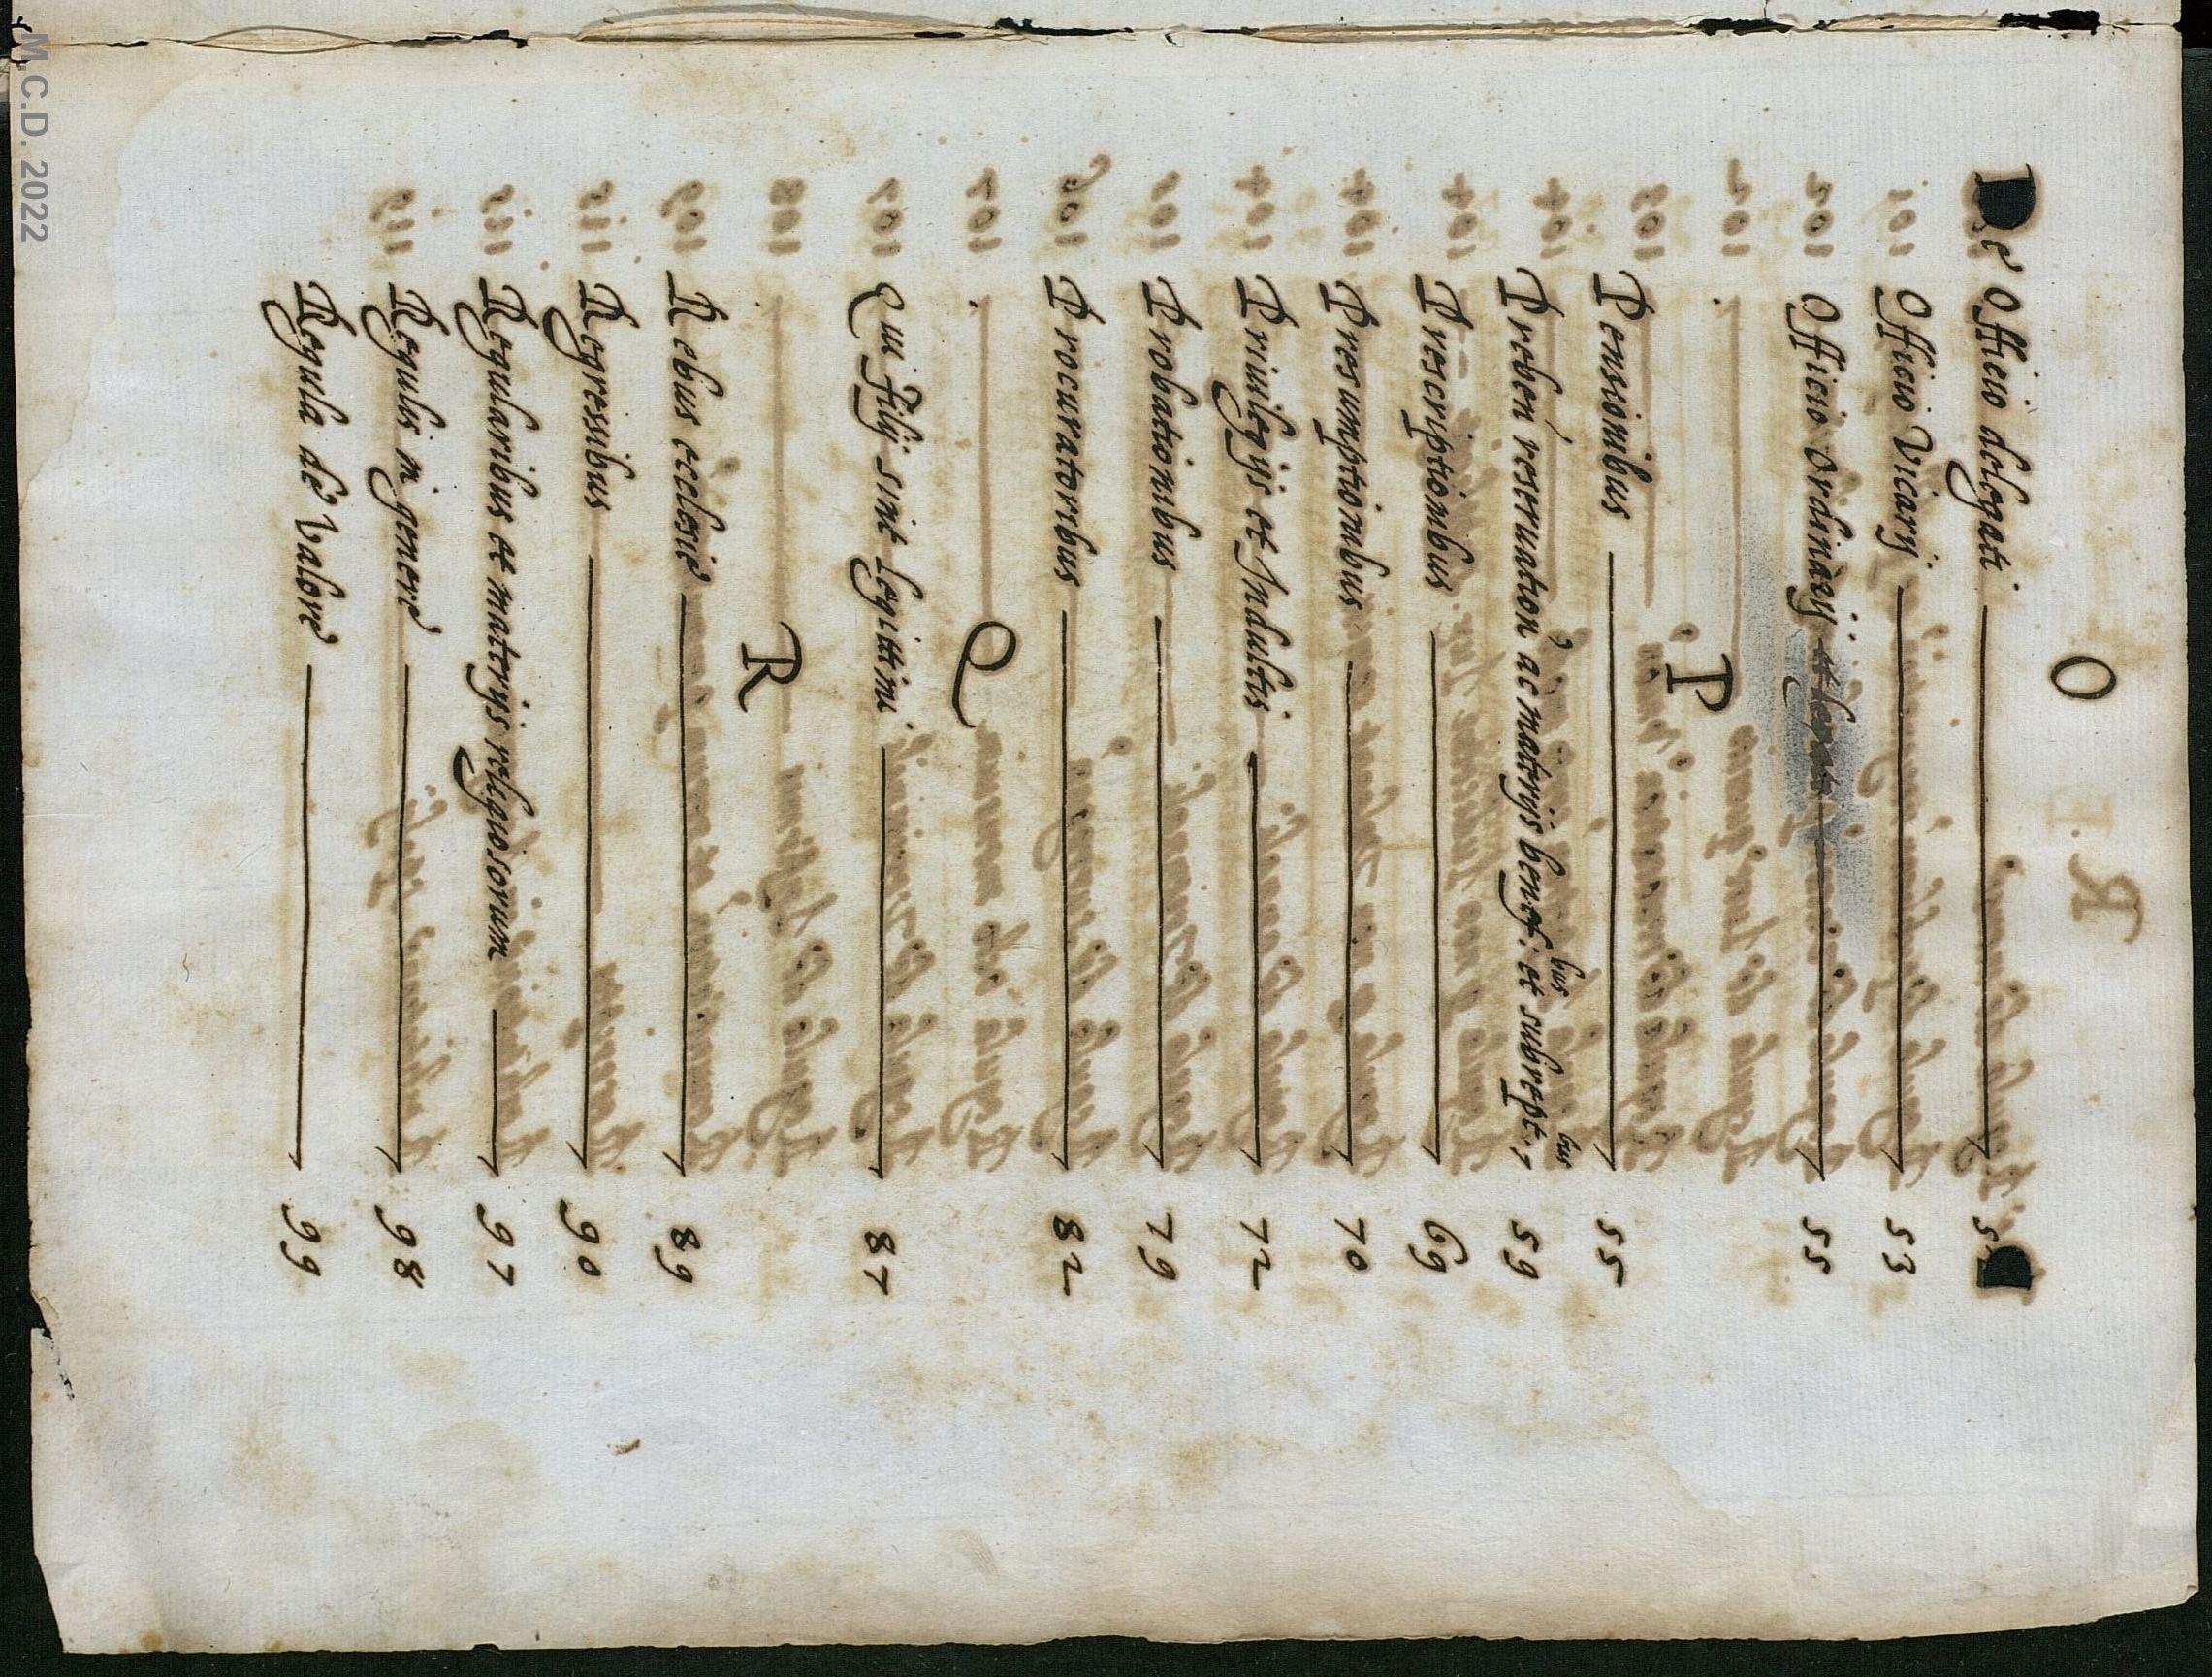 O
De Officio delegati 5
Officio Vicarij 53
Officio ordinarij 55
P
Pensionibus 55
Preben reseruation ac materijs benef: et subrept., 59
bus bus
Prescriptionibus 69
Presumptionibus 70
Priuilegijs et Indultis 72
Probationibus 79
Procuratoribus 82
Q
Qui filij sint legittimi 87
R
Rebus ecclesie 89
Regressibus 90
Regularibus et materijs religiosorum 97
Regulis in genere 98
Regula de Valore 99
M.C.D. 2022